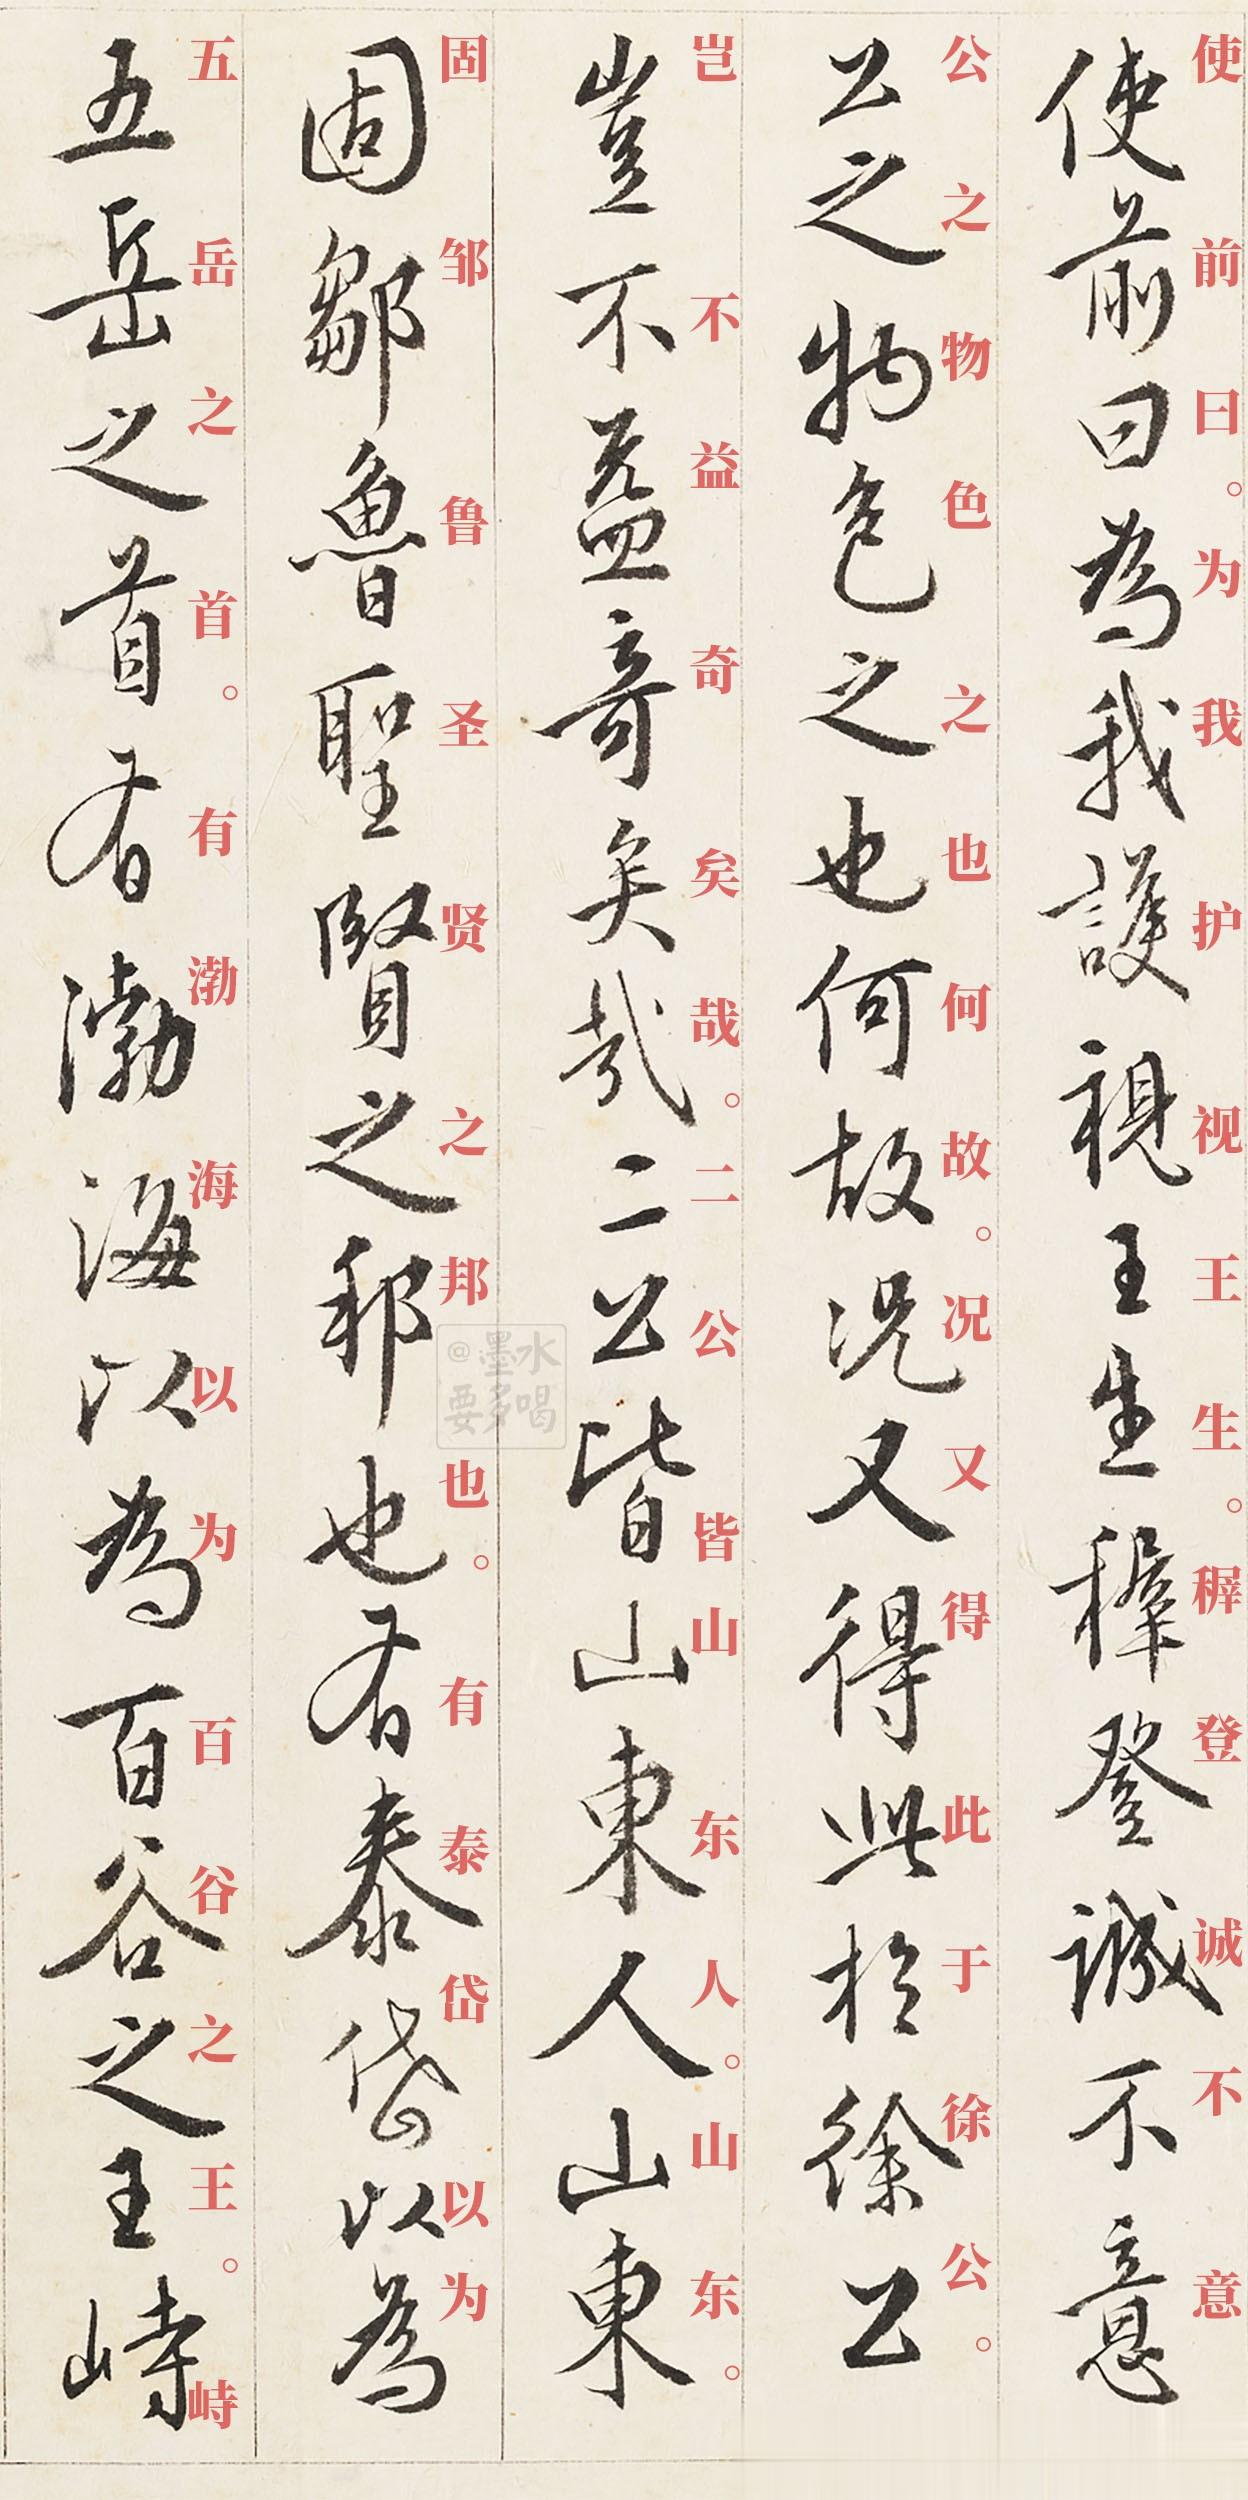 使前曰。为我护视王生。稺登诚不意
使前曰為我護視王生稺登誠不意
公之物色之也何故。况又得此于徐公。
公之物色之也何故况又得此於徐公
岂不益奇矣哉。二公皆山东人。山东。
豈不益奇矣哉二公皆山東人山東
固邹鲁圣贤之邦也。有泰岱以为
固鄒魯聖賢之邦也有泰岱以為
五岳之首。有渤海以为百谷之王。峙
五岳之首有渤海以為百谷之王峙
@墨水
要多喝